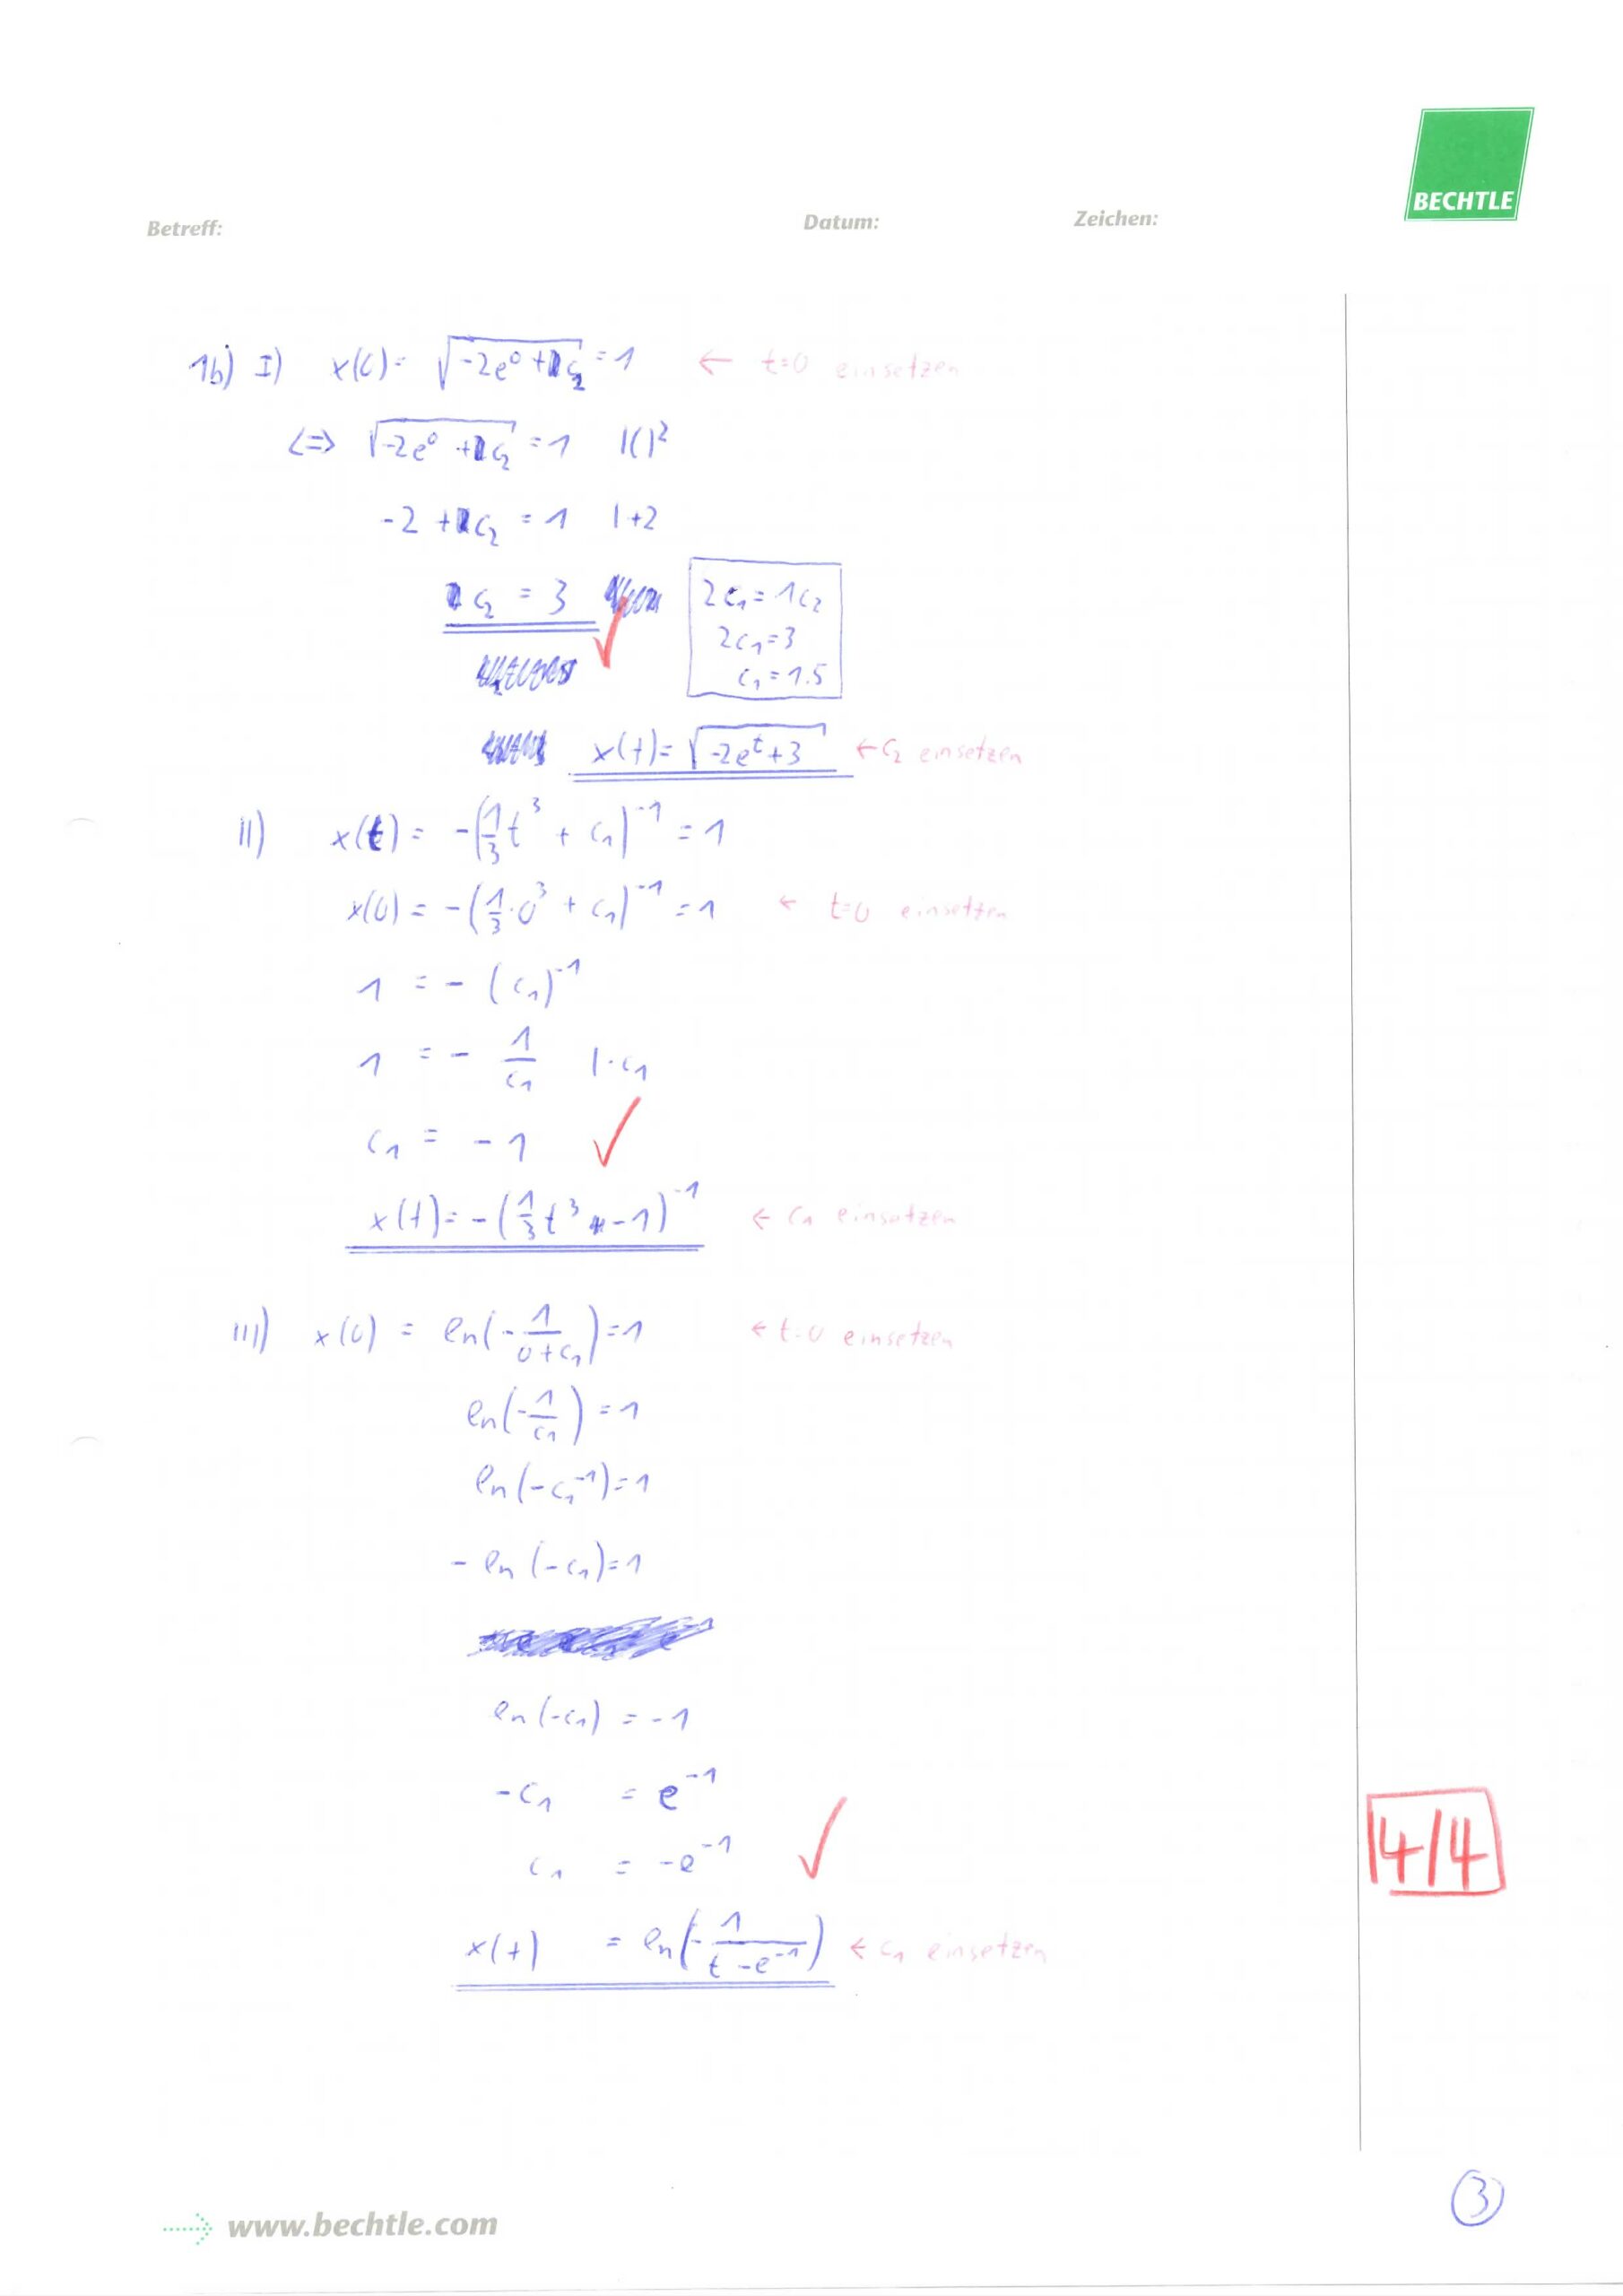 BECHTLE
Betreff: Datum: Zeichen:
1b) I) x(0) = √(-2e⁰ + c₂) = 1 ← t=0 einsetzen
<=> √(-2e⁰ + c₂) = 1 |()²
-2 + c₂ = 1 |+2
c₂ = 3 ✓
2c₁ = 1c₂
2c₁ = 3
c₁ = 1.5
x(t) = √(-2eᵗ + 3) ← c₂ einsetzen
II) x(t) = -(1/3 t³ + c₁)⁻¹ = 1
x(0) = -(1/3 · 0³ + c₁)⁻¹ = 1 ← t=0 einsetzen
1 = -(c₁)⁻¹
1 = - 1/c₁ |·c₁
c₁ = -1 ✓
x(t) = -(1/3 t³ - 1)⁻¹ ← c₁ einsetzen
III) x(0) = ln(- 1/(0 + c₁)) = 1 ← t=0 einsetzen
ln(- 1/c₁) = 1
ln(-c₁⁻¹) = 1
- ln(-c₁) = 1
ln(-c₁) = -1
-c₁ = e⁻¹
c₁ = -e⁻¹ ✓
4/4
x(t) = ln(- 1/(t - e⁻¹)) ← c₁ einsetzen
3
www.bechtle.com